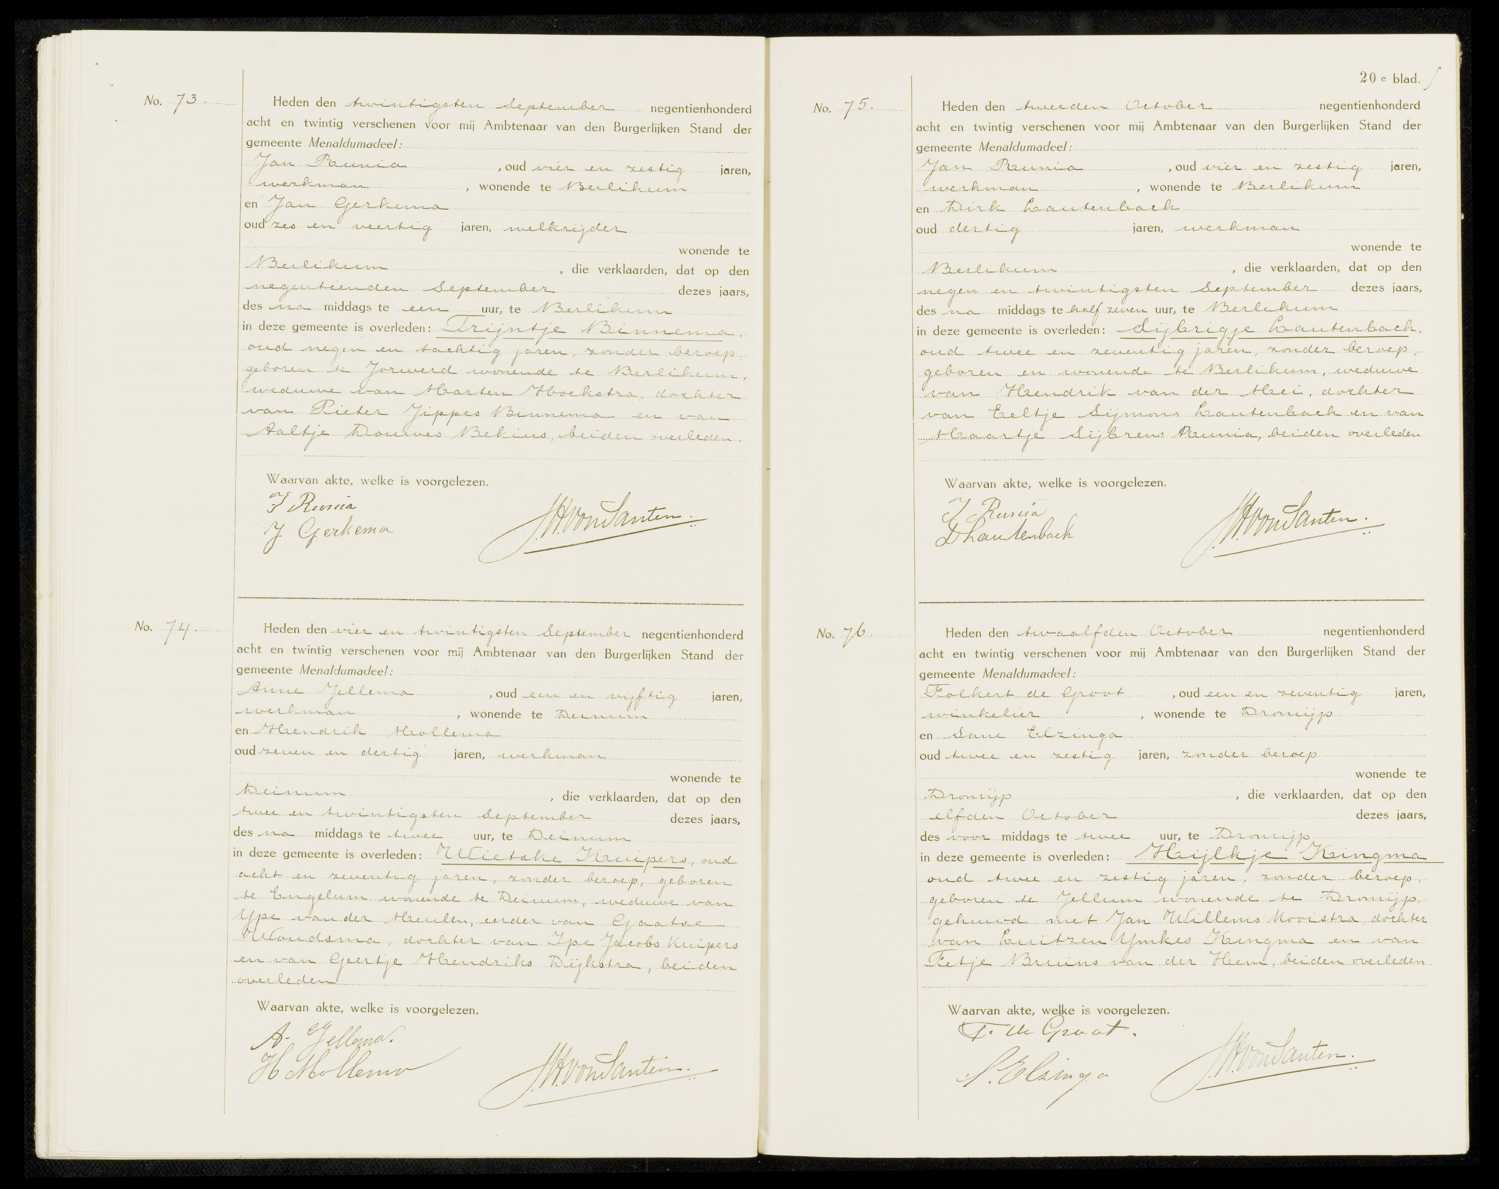 No. 73.
Heden den twintigsten September negentienhonderd
acht en twintig verschenen voor mij Ambtenaar van den Burgerlijken Stand der
gemeente Menaldumadeel:
Jan Runia , oud vier en zestig jaren,
werkman , wonende te Berlikum
en Jan Gerkema
oud zes en veertig jaren, melkrijder
wonende te
Berlikum , die verklaarden, dat op den
negentienden September dezes jaars,
des na middags te een uur, te Berlikum
in deze gemeente is overleden: Trijntje Binnema,
oud negen en tachtig jaren, zonder beroep,
geboren te Jorwerd wonende te Berlikum,
weduwe van Marten Hoekstra, dochter
van Pieter Jippes Binnema en van
Aaltje Douwes Bekius, beiden overleden.
Waarvan akte, welke is voorgelezen.
J Runia
J Gerkema
No. 74.
Heden den vier en twintigsten September negentienhonderd
acht en twintig verschenen voor mij Ambtenaar van den Burgerlijken Stand der
gemeente Menaldumadeel:
Anne Jellema , oud een en vijftig jaren,
werkman , wonende te Deinum
en Hendrik Mollema
oud zeven en dertig jaren, werkman
wonende te
Deinum , die verklaarden, dat op den
twee en twintigsten September dezes jaars,
des na middags te twee uur, te Deinum
in deze gemeente is overleden: Wietske Kuipers, oud
acht en zeventig jaren, zonder beroep, geboren
te Engelum wonende te Deinum, weduwe van
Ype van der Meulen, eerder van Gjaatse
Woudsma, dochter van Ype Jacobs Kuipers
en van Geertje Hendriks Dijkstra, beiden
overleden
Waarvan akte, welke is voorgelezen.
A. Jellema.
H Mollema
J.H. van Santen.
20e blad.
No. 75.
Heden den tweeden October negentienhonderd
acht en twintig verschenen voor mij Ambtenaar van den Burgerlijken Stand der
gemeente Menaldumadeel:
Jan Runia , oud vier en zestig jaren,
werkman , wonende te Berlikum
en Dirk Lautenbach
oud dertig jaren, werkman
wonende te
Berlikum , die verklaarden, dat op den
negen en twintigsten September dezes jaars,
des na middags te half zeven uur, te Berlikum
in deze gemeente is overleden: Sijbrigje Lautenbach,
oud twee en zeventig jaren, zonder beroep,
geboren en wonende te Berlikum, weduwe
van Hendrik van der Mei, dochter
van Eeltje Sijmons Lautenbach en van
Maartje Sijbrens Runia, beiden overleden
Waarvan akte, welke is voorgelezen.
J Runia
D Lautenbach
J.H. van Santen.
No. 76.
Heden den twaalfden October negentienhonderd
acht en twintig verschenen voor mij Ambtenaar van den Burgerlijken Stand der
gemeente Menaldumadeel:
Folkert de Groot , oud een en zeventig jaren,
winkelier , wonende te Dronrijp
en Sane Elzinga
oud twee en zestig jaren, zonder beroep
wonende te
Dronrijp , die verklaarden, dat op den
elfden October dezes jaars,
des voor middags te twee uur, te Dronrijp
in deze gemeente is overleden: Heijlkje Kingma
oud twee en zestig jaren, zonder beroep,
geboren te Jellum wonende te Dronrijp,
gehuwd met Jan Willems Mooistra, dochter
van Luitzen Ymkes Kingma en van
Fetje Bruins van der Heem, beiden overleden
Waarvan akte, welke is voorgelezen.
F. de Groot.
S. Elzinga
J.H. van Santen.